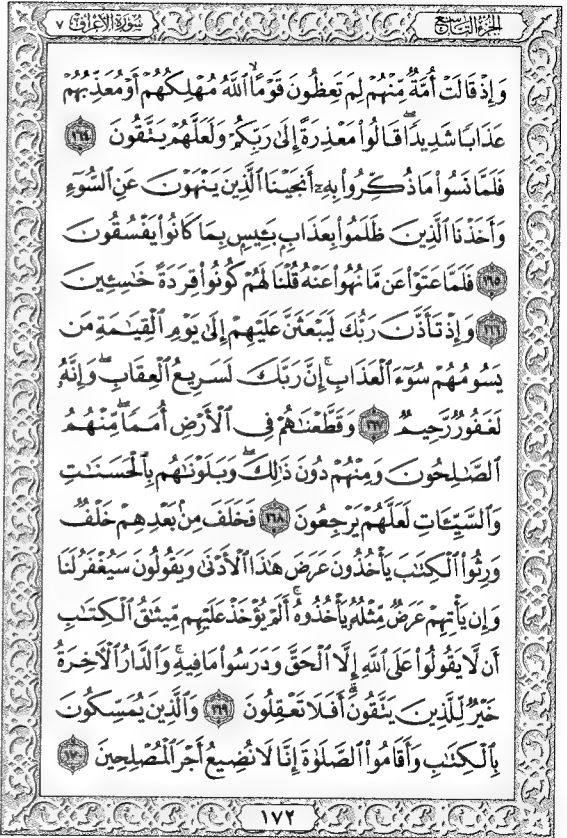 الجزء التاسع
سورة الأعراف ٧
وَإِذْ قَالَتْ أُمَّةٌ مِّنْهُمْ لِمَ تَعِظُونَ قَوْمًا ۙ اللَّهُ مُهْلِكُهُمْ أَوْ مُعَذِّبُهُمْ
عَذَابًا شَدِيدًا ۖ قَالُوا۟ مَعْذِرَةً إِلَىٰ رَبِّكُمْ وَلَعَلَّهُمْ يَتَّقُونَ ١٦٤
فَلَمَّا نَسُوا۟ مَا ذُكِّرُوا۟ بِهِۦٓ أَنجَيْنَا الَّذِينَ يَنْهَوْنَ عَنِ السُّوٓءِ
وَأَخَذْنَا الَّذِينَ ظَلَمُوا۟ بِعَذَابٍۭ بَـِٔيسٍۭ بِمَا كَانُوا۟ يَفْسُقُونَ
١٦٥ فَلَمَّا عَتَوْا۟ عَن مَّا نُهُوا۟ عَنْهُ قُلْنَا لَهُمْ كُونُوا۟ قِرَدَةً خَٰسِـِٔينَ
١٦٦ وَإِذْ تَأَذَّنَ رَبُّكَ لَيَبْعَثَنَّ عَلَيْهِمْ إِلَىٰ يَوْمِ الْقِيَٰمَةِ مَن
يَسُومُهُمْ سُوٓءَ الْعَذَابِ ۗ إِنَّ رَبَّكَ لَسَرِيعُ الْعِقَابِ ۖ وَإِنَّهُۥ
لَغَفُورٌ رَّحِيمٌ ١٦٧ وَقَطَّعْنَٰهُمْ فِى الْأَرْضِ أُمَمًا ۖ مِّنْهُمُ
الصَّٰلِحُونَ وَمِنْهُمْ دُونَ ذَٰلِكَ ۖ وَبَلَوْنَٰهُم بِالْحَسَنَٰتِ
وَالسَّيِّـَٔاتِ لَعَلَّهُمْ يَرْجِعُونَ ١٦٨ فَخَلَفَ مِنۢ بَعْدِهِمْ خَلْفٌ
وَرِثُوا۟ الْكِتَٰبَ يَأْخُذُونَ عَرَضَ هَٰذَا الْأَدْنَىٰ وَيَقُولُونَ سَيُغْفَرُ لَنَا
وَإِن يَأْتِهِمْ عَرَضٌ مِّثْلُهُۥ يَأْخُذُوهُ ۚ أَلَمْ يُؤْخَذْ عَلَيْهِم مِّيثَٰقُ الْكِتَٰبِ
أَن لَّا يَقُولُوا۟ عَلَى اللَّهِ إِلَّا الْحَقَّ وَدَرَسُوا۟ مَا فِيهِ ۗ وَالدَّارُ الْءَاخِرَةُ
خَيْرٌ لِّلَّذِينَ يَتَّقُونَ ۗ أَفَلَا تَعْقِلُونَ ١٦٩ وَالَّذِينَ يُمَسِّكُونَ
بِالْكِتَٰبِ وَأَقَامُوا۟ الصَّلَوٰةَ إِنَّا لَا نُضِيعُ أَجْرَ الْمُصْلِحِينَ ١٧٠
١٧٢